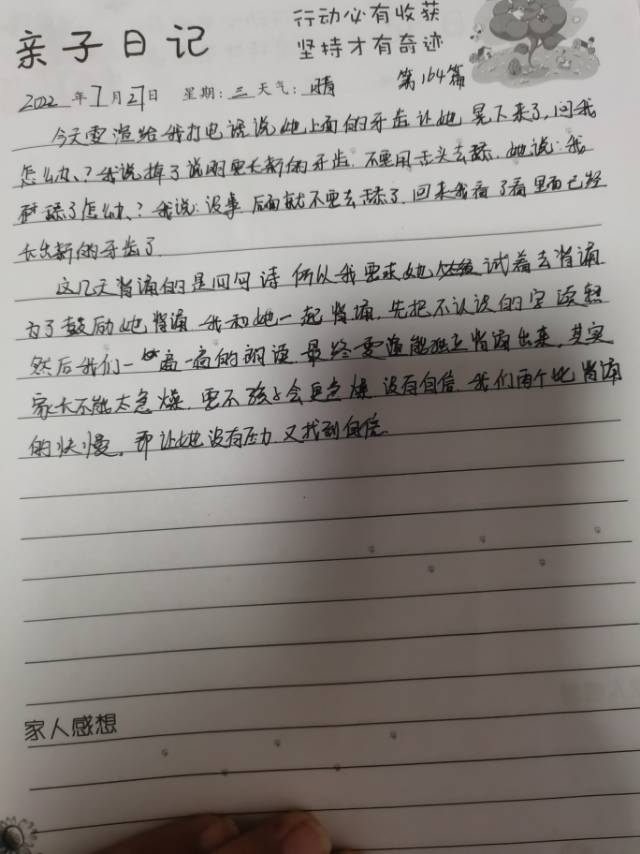 行动必有收获
坚持才有奇迹
亲子日记
第164篇
2022年7月27日 星期:三 天气:晴
今天雯渲给我打电话说她上面的牙齿让她晃下来了,问我
怎么办?我说掉了说明要长新的牙齿.不要用舌头去舔.她说:我
舔了怎么办?我说:没事 后面就不要去舔了.回来我看了看里面已经
长出新的牙齿了.
这几天背诵的是问句诗 所以我要求她 试着去背诵
为了鼓励她背诵 我和她一起背诵.先把不认识的字读熟
然后我们一 一高一病的朗读.最终雯渲能独立背诵出来.其实
家长不能太急燥.要不孩子会更急燥 没有自信.我们两个比背诵
的快慢.即让她没有压力又找到自信.
家人感想